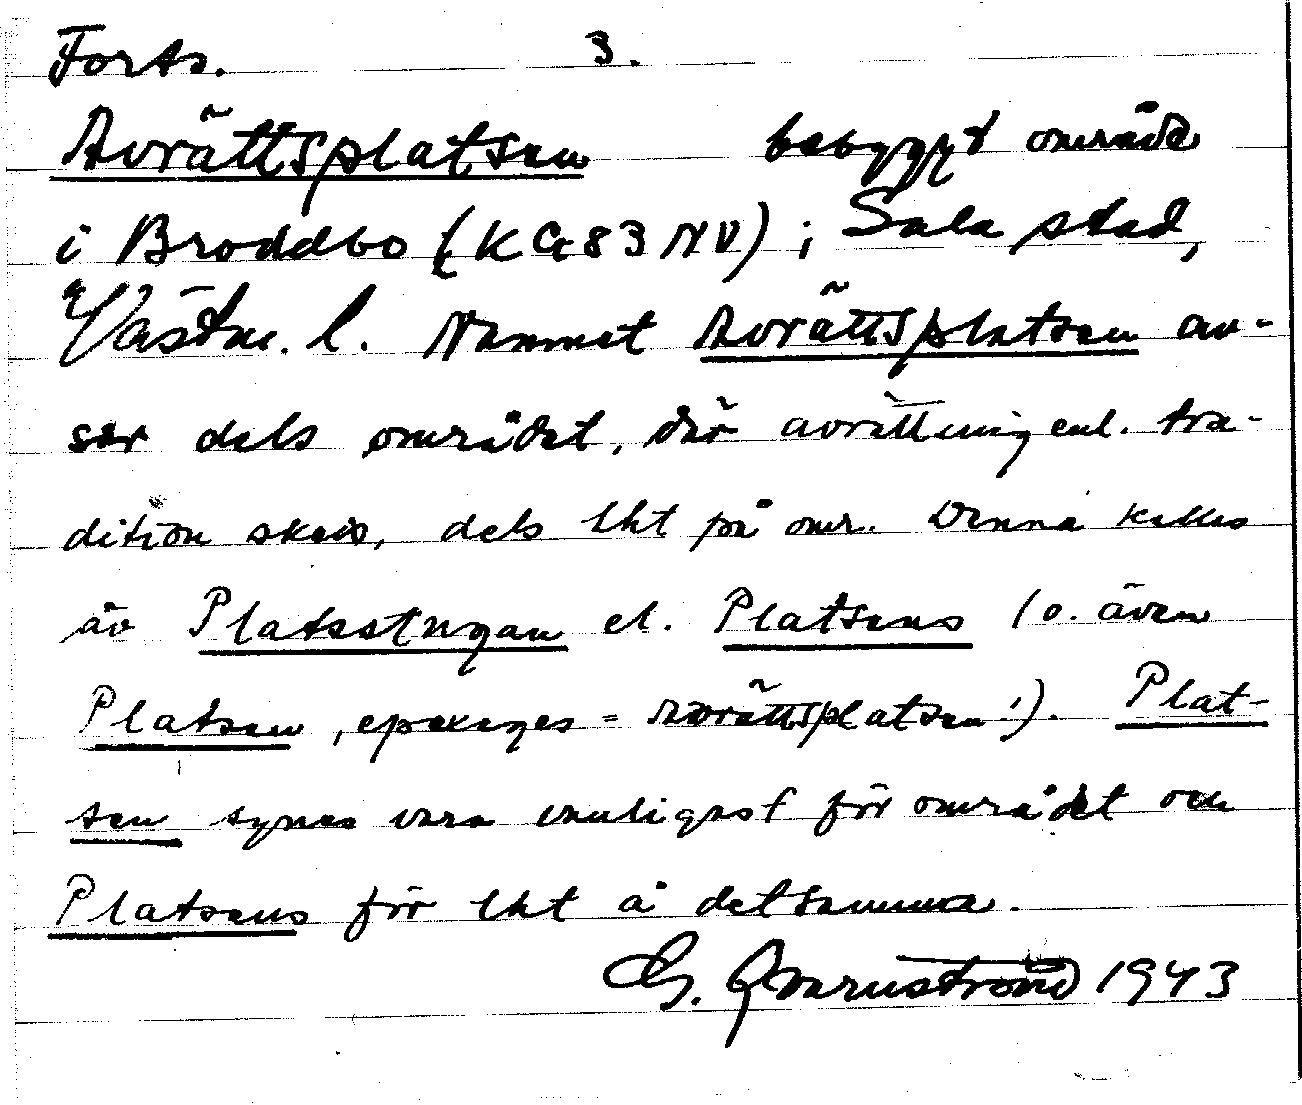 Forts. 3.
Avrättsplatsen bebyggt område
i Broddbo (KG83NV) i Sala stad,
Västm. l. Namnet Avrättsplatsen av-
ser dels området, där avrättning enl. tra-
dition skett, dels lht på omr. Denna kallas
äv Platsstugan el. Platsens (o. även
Platsen, epexeges = Avrättsplatsen!). Plat-
sen synes vara vanligast för området och
Platsens för lht å detsamma.
G. Qvarnström 1943